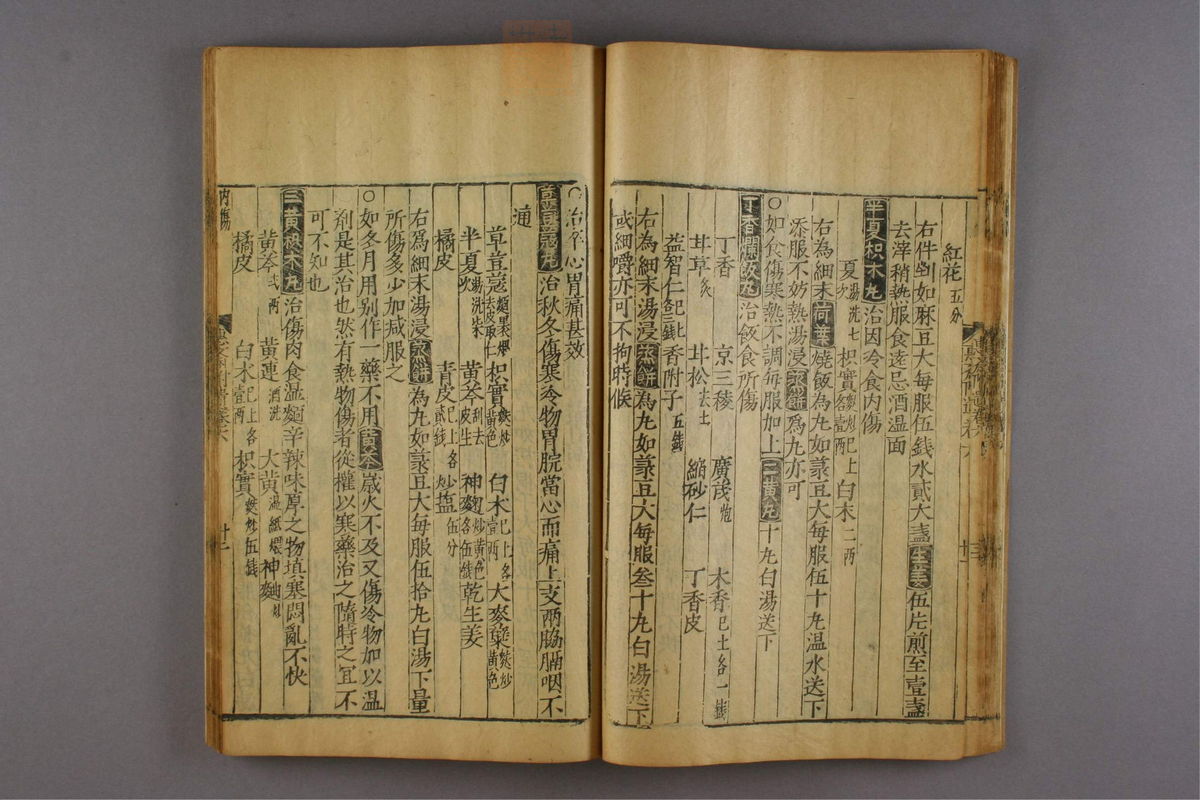 紅花五分
右件剉如麻豆大每服伍錢水貳大盞生姜伍片煎至壹盞
去滓稍熱服食遠忌酒温面
半夏枳木丸治因冷食内傷
夏湯洗七次枳實麩炒各壹兩巳上白木二兩
右為細末荷葉燒飯為丸如菉豆大每服伍十丸温水送下
添服不妨熱湯浸蒸餅爲丸亦可
○如食傷寒熱不調每服加上二黄丸十丸白湯送下
丁香爛飯丸治飯食所傷
丁香 京三稜 廣茂炮 木香巳上各一錢
甘草炙 甘松去土 縮砂仁 丁香皮
益智仁巳上三錢香附子五錢
右為細末湯浸蒸餅為丸如菉豆大每服叁十丸白湯送下
或細嚼亦可不拘時候
○治卒心胃痛甚效
草荳蔻丸治秋冬傷寒冷物胃脘當心而痛上支兩脇膈咽不
通
草荳蔻麵裹煨去皮取仁枳實麩炒黄色 白木巳上各壹兩大麥糵麩炒黄色
半夏湯洗柒次 黄芩刮去皮生 神麯炒黄色各伍錢乾生姜
橘皮 青皮巳上各貳錢 炒塩伍分
右爲細末湯浸蒸餅為丸如菉豆大每服伍拾丸白湯下量
所傷多少加减服之
○如冬月用别作一藥不用黄芩歲火不及又傷冷物加以温
劑是其治也然有熱物傷者從權以寒藥治之隨時之宜不
可不知也
三黄枳木丸治傷肉食温麵辛辣味厚之物填塞悶亂不快
黄芩貳兩 黄連酒洗 大黄濕紙煨神麯炒
橘皮 白木巳上各壹兩 枳實麩炒伍錢
内傷
十二